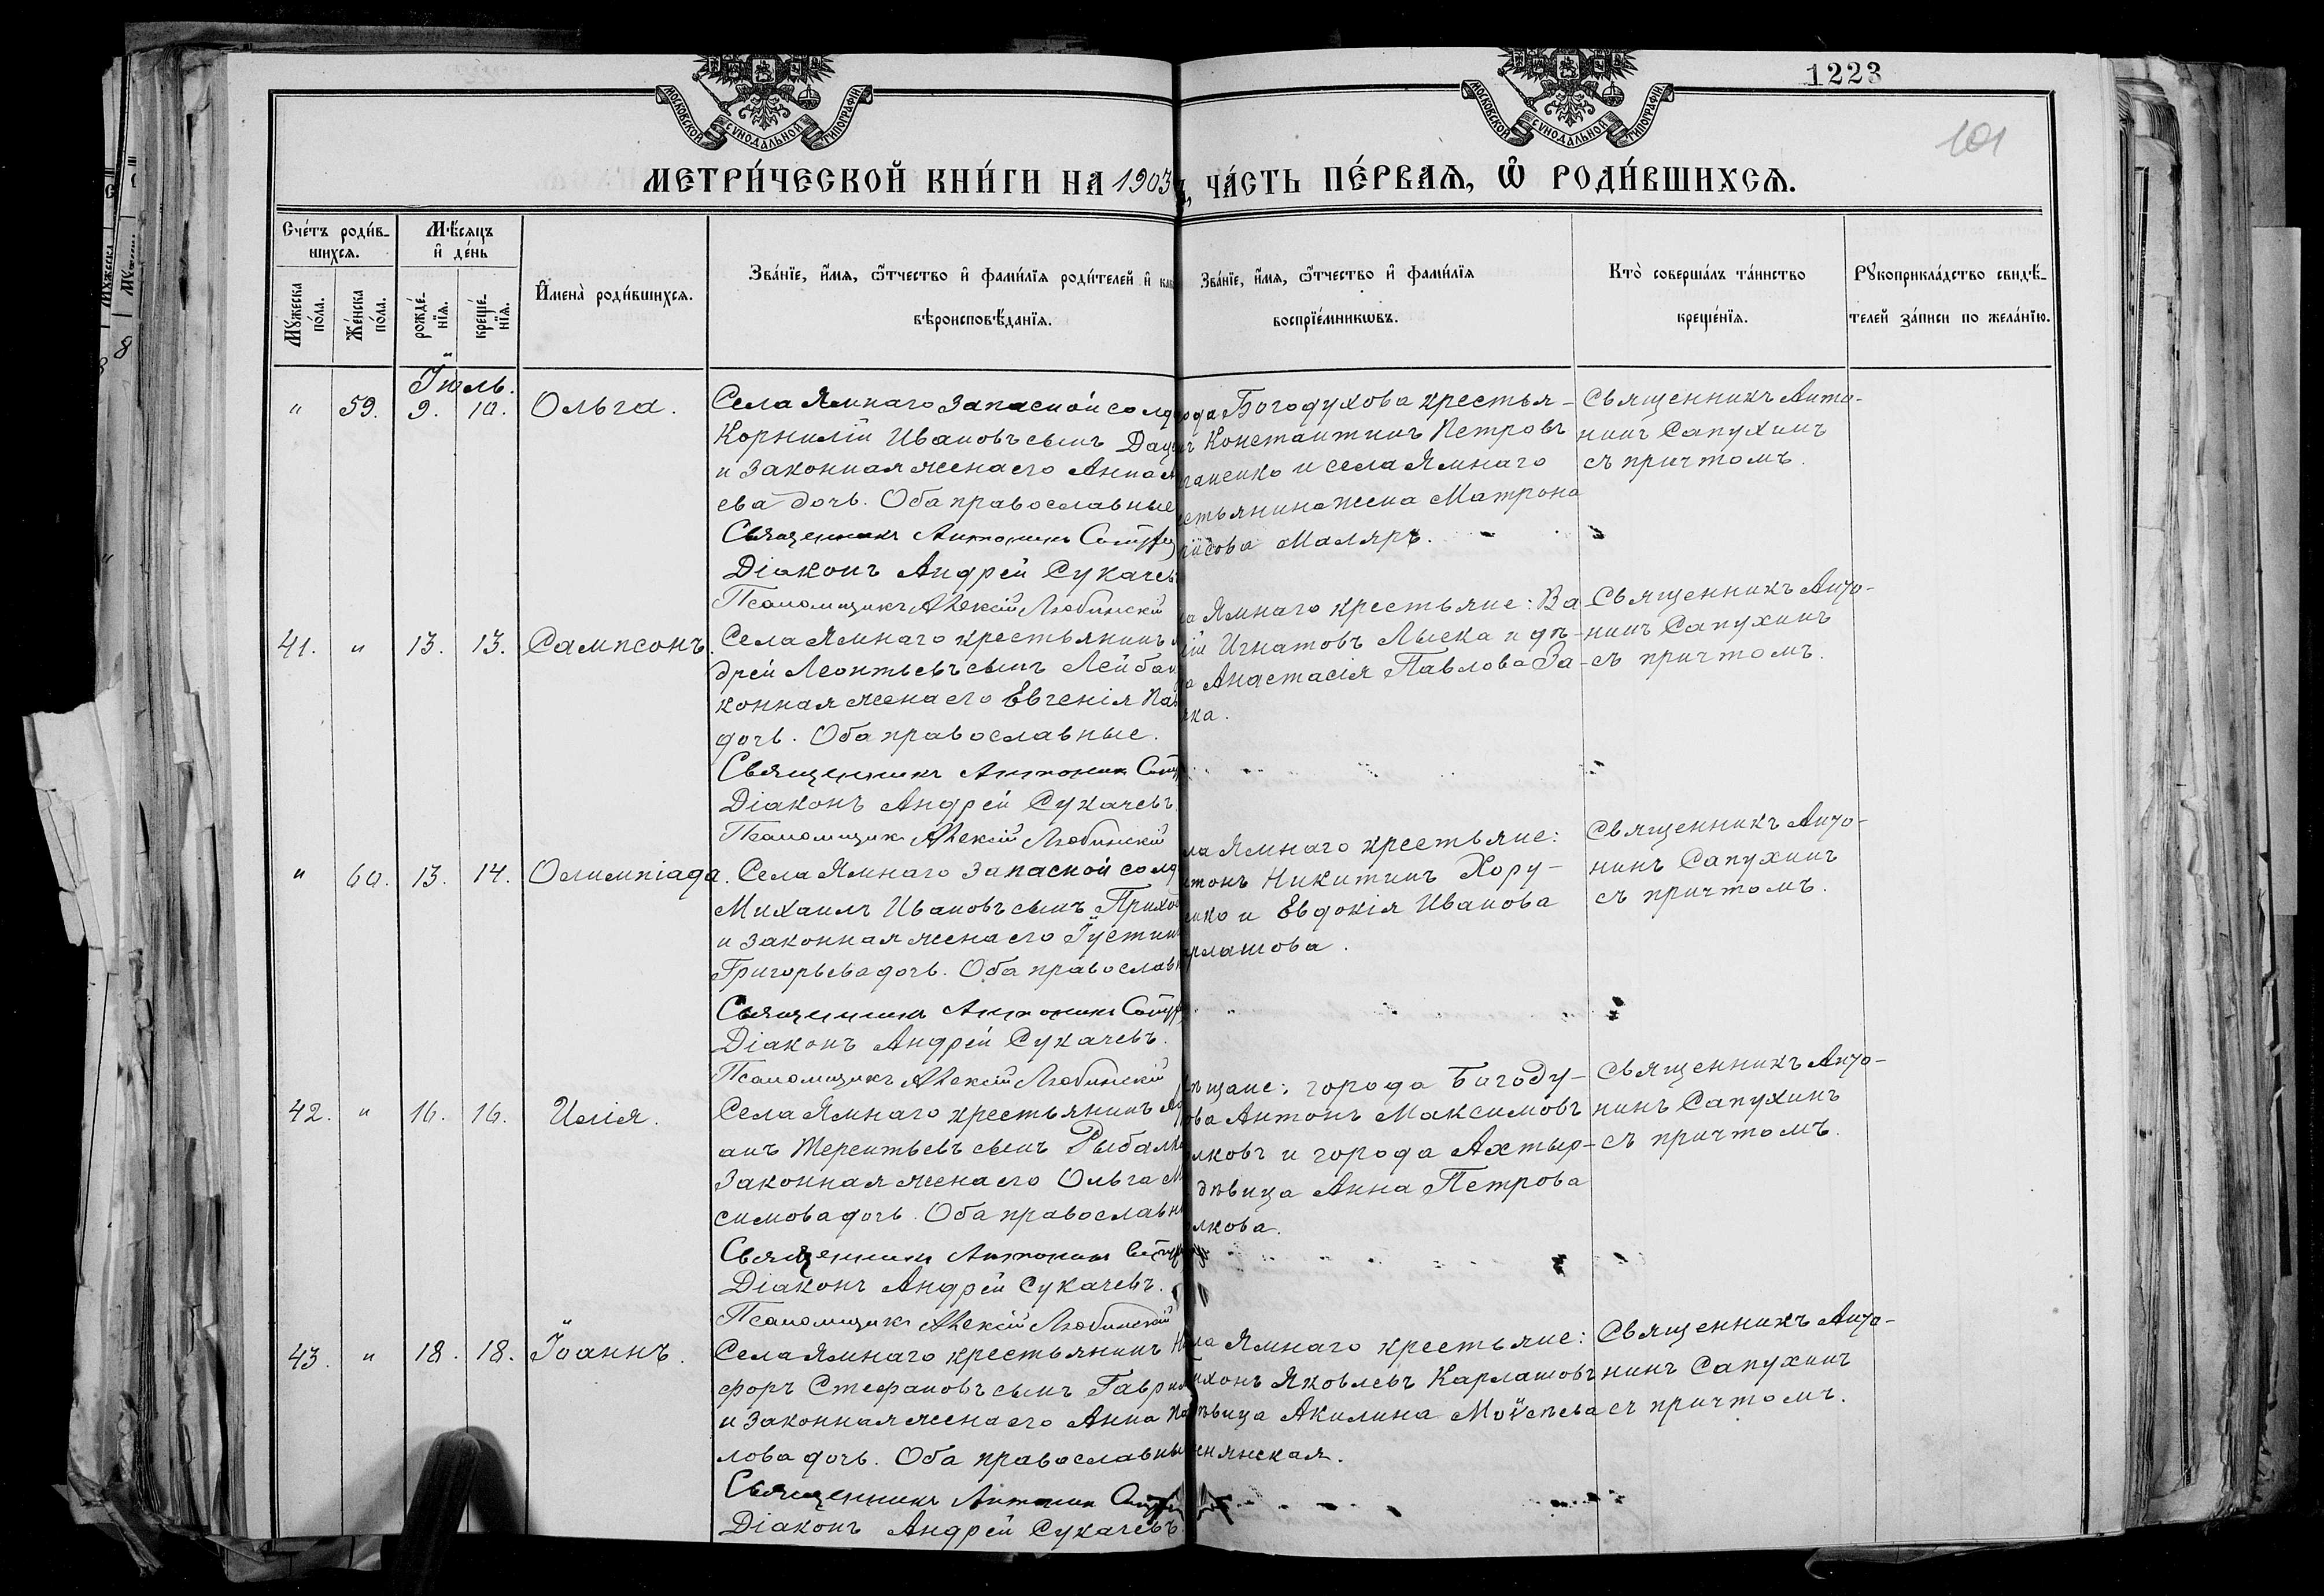 1223
101
МОСКОВСКОЙ СѴНОДАЛЬНОЙ ТИПОГРАФІИ
МОСКОВСКОЙ СѴНОДАЛЬНОЙ ТИПОГРАФІИ
МЕТРИ́ЧЕСКОЙ КНИ́ГИ НА 1903 ЧА́СТЬ ПЕ́РВАѦ, Ѡ҆ РОДИ́ВШИХСѦ.
Сче́тъ роди́в-
шихсѧ.
Мꙋ́жеска по́ла.
Же́нска по́ла.
Мѣ́сѧцъ
и҆ де́нь
рожде́-
нїѧ.
креще́-
нїѧ.
И҆мена̀ роди́вшихсѧ.
Зва́нїе, и҆́мѧ, ѻ҆́тчество и҆ фами́лїѧ роди́телей и҆
вѣроисповѣ́данїѧ.
Зва́нїе, и҆́мѧ, ѻ҆́тчество и҆ фами́лїѧ
воспрїе́мникѡвъ.
Кто̀ соверша́лъ та́инство
креще́нїѧ.
Рꙋкоприкла́дство свидѣ́-
телей за́писи по жела́нїю.
Іюль.
" 59. 9. 10. Ольга.
Села Ямнаго запасной солд
Корнилій Ивановъ сынъ Дац
и законная жена его Анна
ева дочь. Оба православные
Священникъ Антонинъ Сапух
Діаконъ Андрей Сукачевъ
Псаломщикъ Алексій Любинскій
ода Богодухова крестья-
Константинъ Петровъ
ганенко и села Ямнаго
стьянина жена Матрона
рисова Маляръ.
Священникъ Анто-
нинъ Сапухинъ
съ причтомъ.
41. " 13. 13. Сампсонъ.
Села Ямнаго крестьянинъ
дрей Леонтьевъ сынъ Лейба
конная жена его Евгенія Па
дочь. Оба православные.
Священникъ Антонинъ Сап
Діаконъ Андрей Сукачевъ
Псаломщикъ Алексій Любинскій
ла Ямнаго крестьяне: Ва
лій Игнатовъ Лыска и дѣ-
ца Анастасія Павлова За-
яка.
Священникъ Анто-
нинъ Сапухинъ
съ причтомъ.
" 60. 13. 14. Олимпіада.
Села Ямнаго запасной солд
Михаилъ Ивановъ сынъ Прихо
и законная жена его Іустин
Григорьева дочь. Оба православ
Священникъ Антонинъ Сапух
Діаконъ Андрей Сукачевъ.
Псаломщикъ Алексій Любинскій
ла Ямнаго крестьяне:
итонъ Никитинъ Хору-
енко и Евдокія Иванова
арлашова.
Священникъ Анто-
нинъ Сапухинъ
съ причтомъ.
42. " 16. 16. Илія.
Села Ямнаго крестьянинъ
анъ Терентьевъ сынъ Рыбалк
законная жена его Ольга М
симова дочь. Оба православн
Священникъ Антонинъ Сапух
Діаконъ Андрей Сукачевъ.
Псаломщикъ Алексій Любинскій
ѣщане: города Богоду-
ова Антонъ Максимовъ
лковъ и города Ахтыр-
дѣвица Анна Петрова
лкова.
Священникъ Анто-
нинъ Сапухинъ
съ причтомъ.
43. " 18. 18. Іоаннъ.
Села Ямнаго крестьянинъ Ни
форъ Стефановъ сынъ Гаврил
и законная жена его Анна Па
лова дочь. Оба православны
Священникъ Антонинъ Сапух
Діаконъ Андрей Сукачевъ
ла Ямнаго крестьяне:
ихонъ Яковлевъ Карлашовъ
ѣвица Акилина Моѵсеева
енянская.
Священникъ Анто-
нинъ Сапухинъ
съ причтомъ.